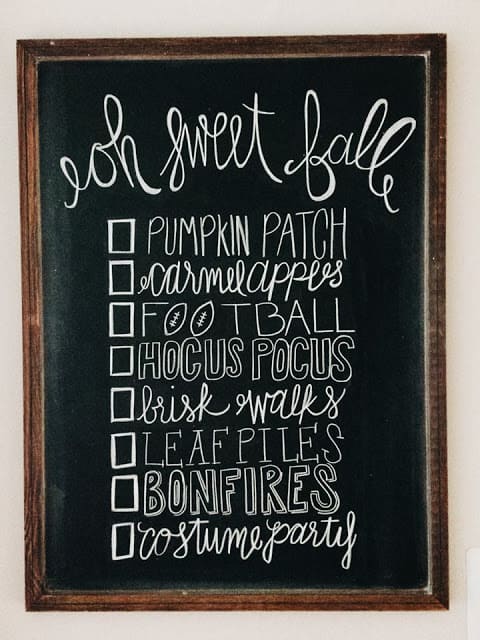 oh sweet fall
PUMPKIN PATCH
carmel apples
FOOTBALL
HOCUS POCUS
brisk walks
LEAF PILES
BONFIRES
costume party